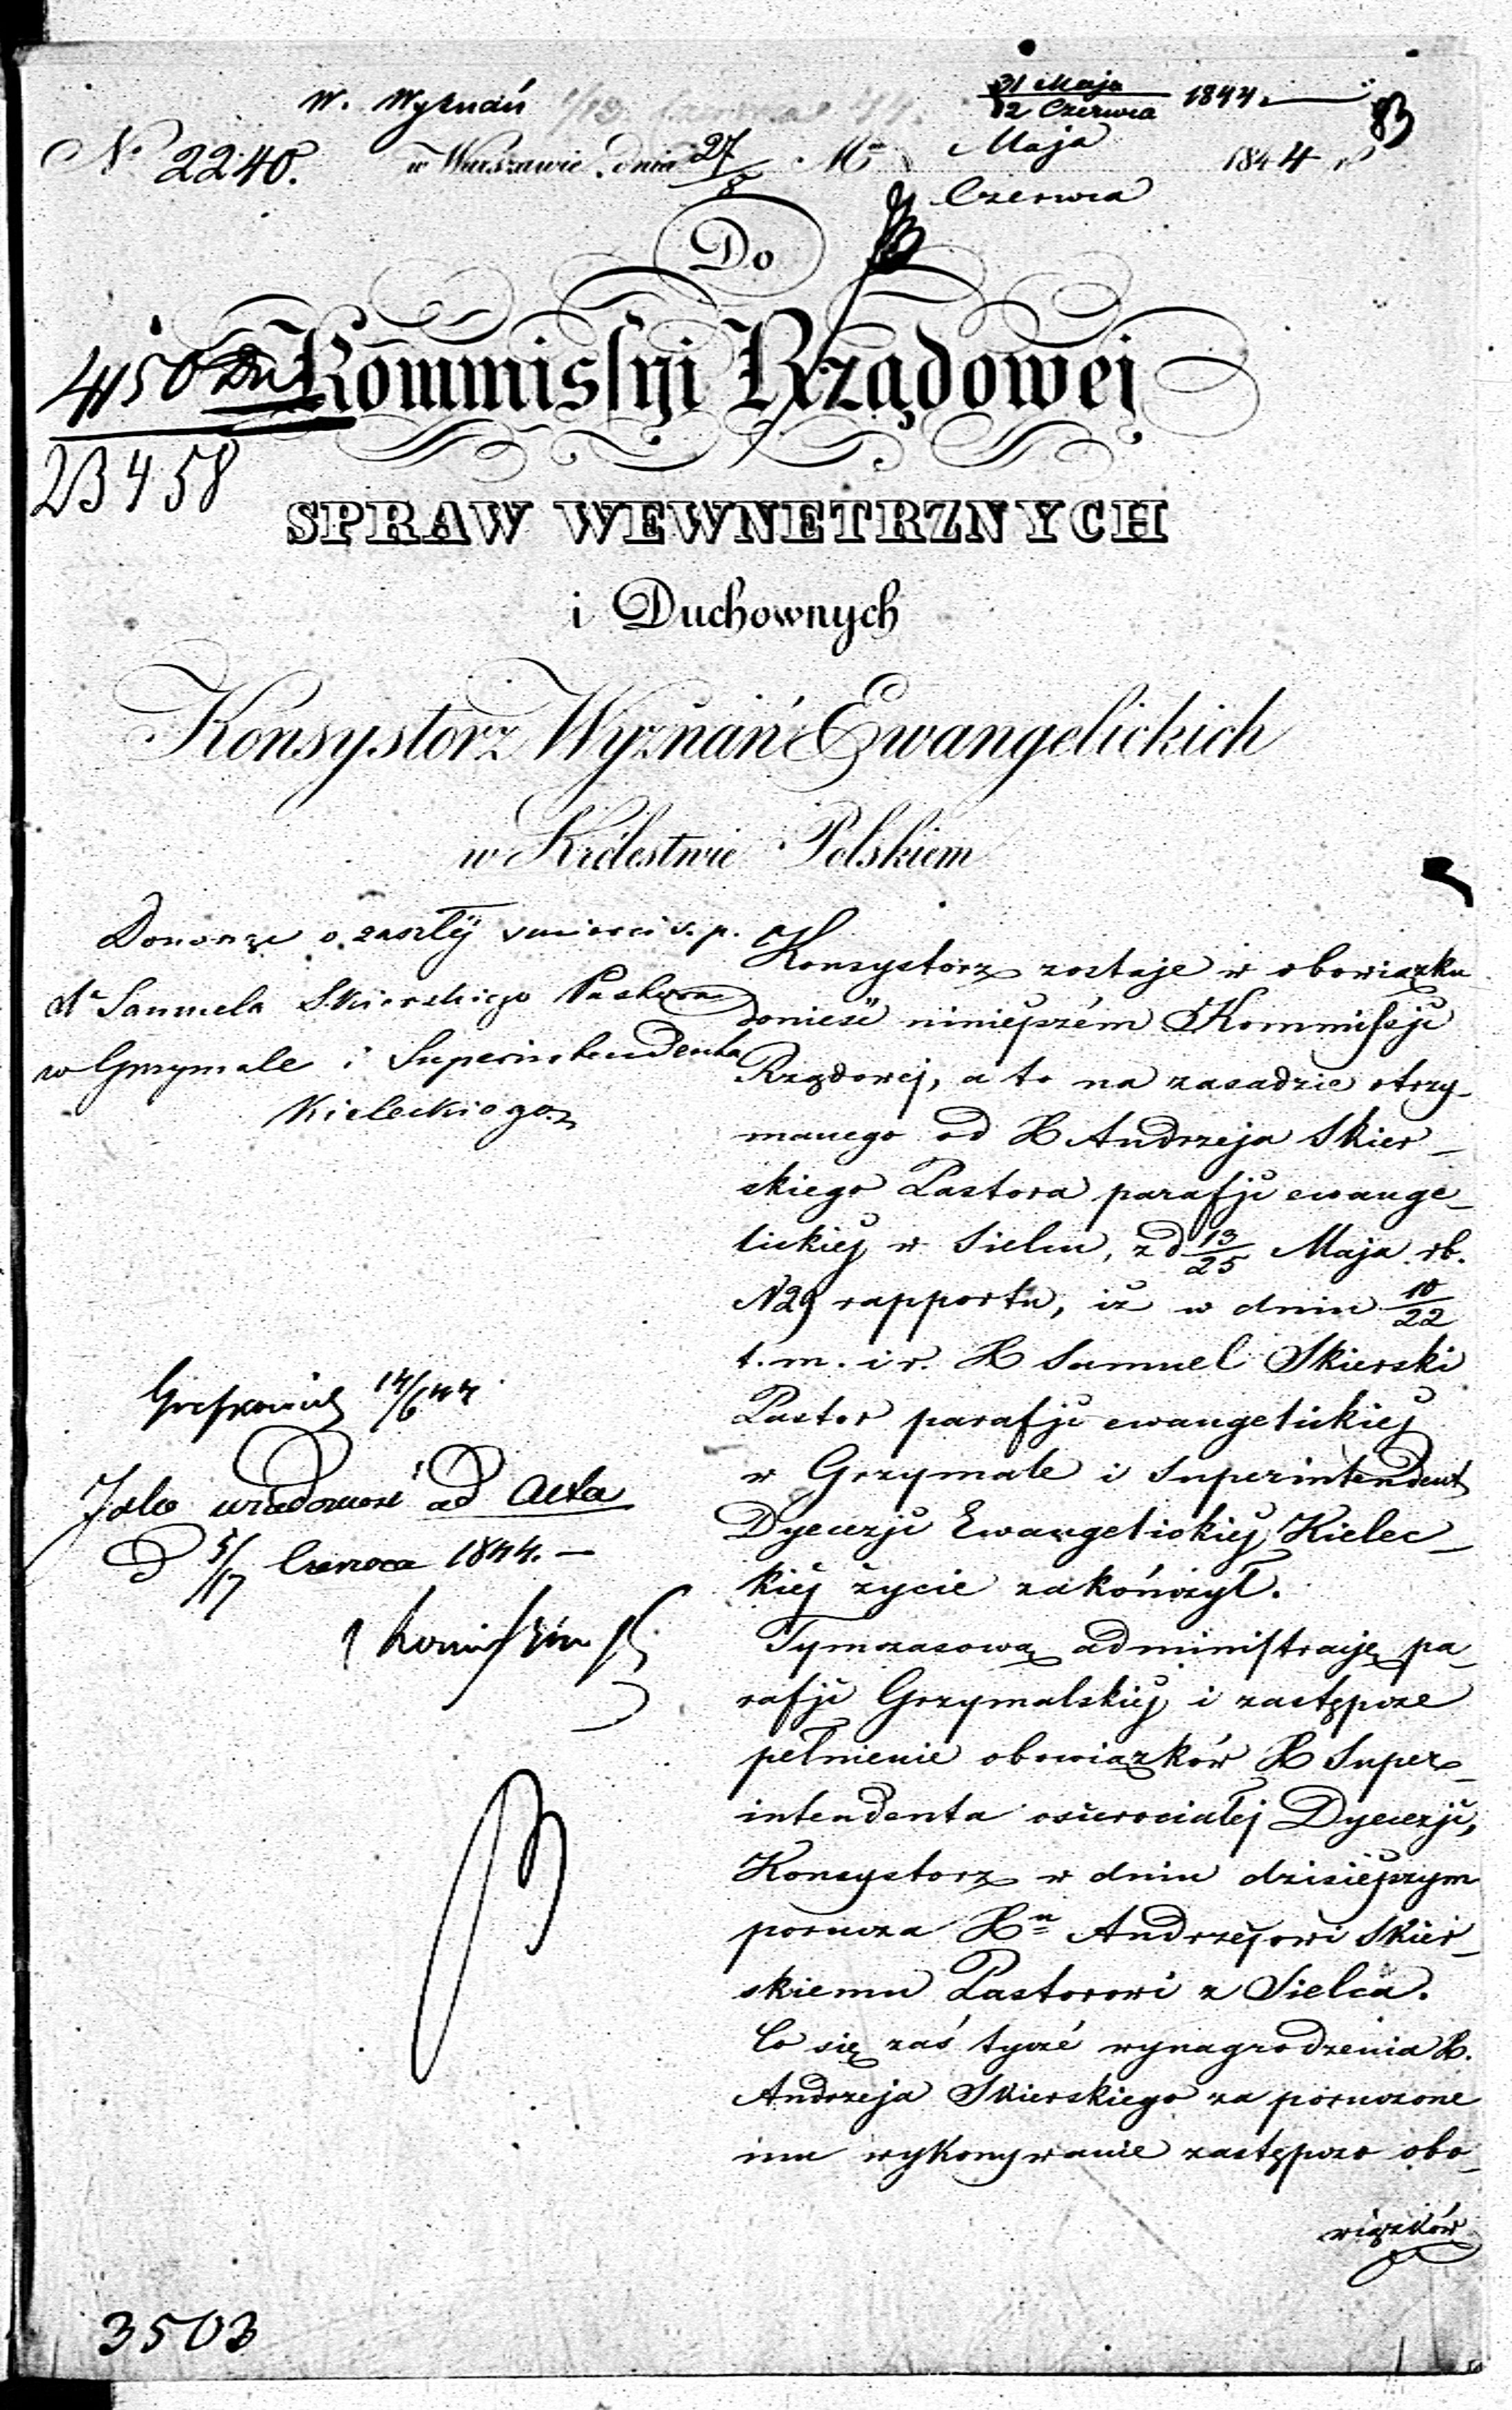 W. Wyznań
31 Maja
12 Czerwca 1844.
83
No 2240. w Warszawie dnia 27/8 Mca Maja 1844 r
Czerwca
Do
4150
23458
Kommissyi Rządowej
SPRAW WEWNETRZNYCH
i Duchownych
Konsystorz Wyznań Ewangelickich
w Królestwie Polskiem
Donosząc o zaszłéj śmierci ś. p.
Samuela Skierskiego Pastora
w Grzymale i Superintendenta
Kieleckiego
Konsystorz zostaje w obowiązku
donieść niniejszém Kommissji
Rządowéj, a to na zasadzie otrzy-
manego od X Andrzeja Skier-
skiego Pastora parafji ewange-
lickiéj w Sielcu, z d 13/25 Maja rb.
N 29 rapportu, iż w dniu 10/22
t. m. i r. X Samuel Skierski
Pastor parafji ewangelickiéj
w Grzymale i Superintendent
Dyecezji Ewangelickiéj Kielec-
kiéj życie zakończył.
Tymczasową administrację pa-
rafji Grzymalskiéj i zastępcze
pełnienie obowiązków X Super-
intendenta osierociałéj Dyecezji,
Konsystorz w dniu dzisiejszym
porucza Xu Andrzejowi Skier-
skiemu Pastorowi z Sielca.
Co się zaś tycze wynagrodzenia X.
Andrzeja Skierskiego za poruczone
mu wykonywanie zastępczo obo-
wiązków
14/6 44
Jako wiadomość ad Acta
D 5/17 Czerwca 1844. -
3503